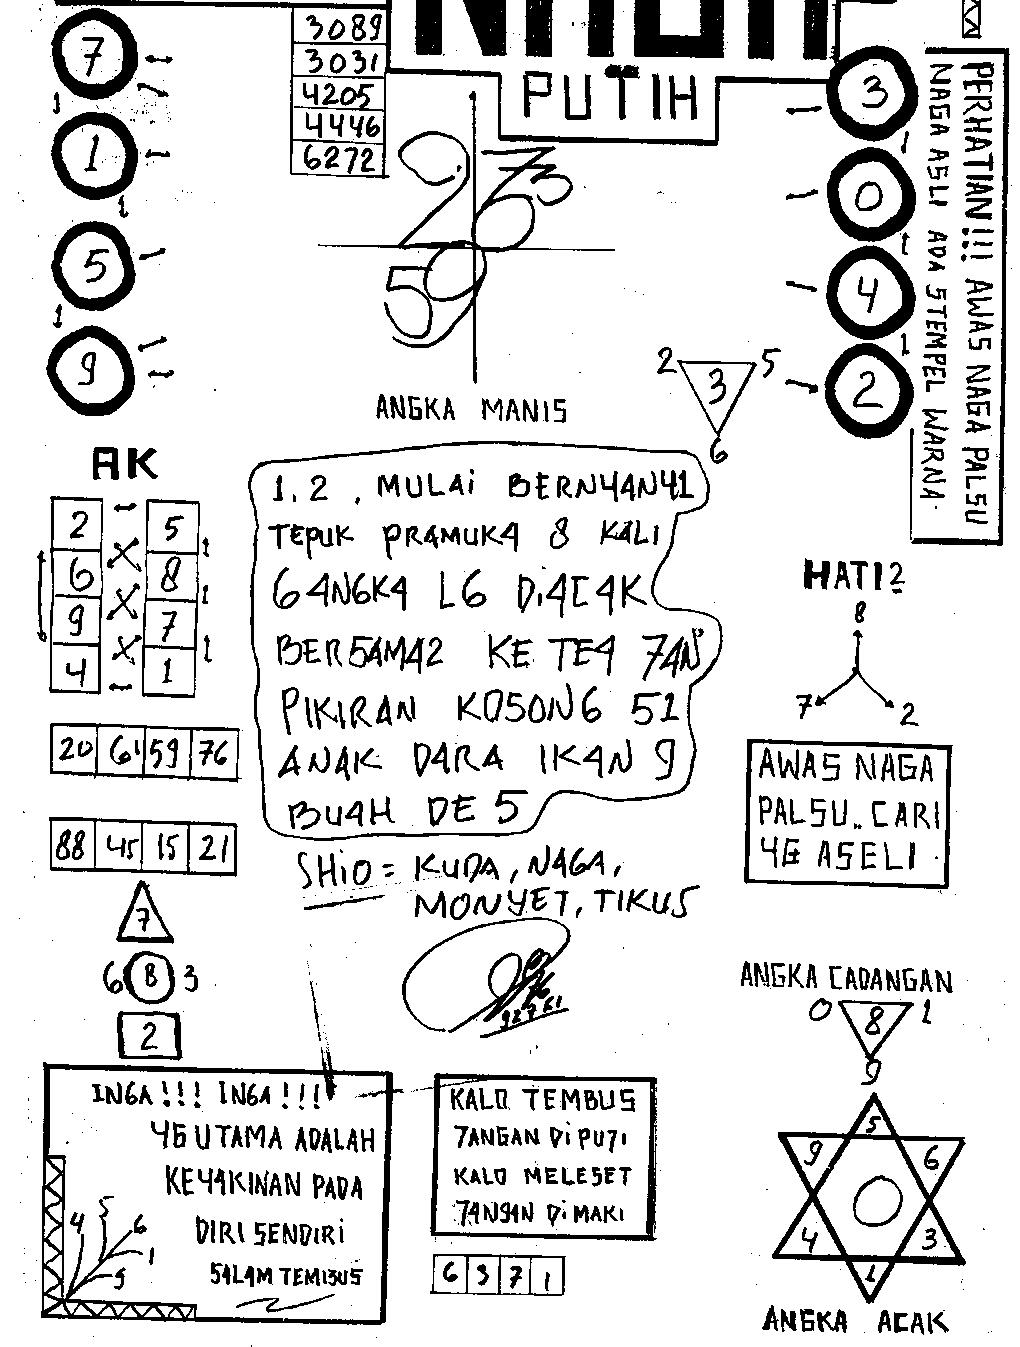 PUTIH
3089
3031
4205
4446
6272
7
1
5
9
3
0
4
2
PERHATIAN!!! AWAS NAGA PALSU
NAGA ASLI ADA STEMPEL WARNA.
ANGKA MANIS
2 3 5
6
AK
2 5
6 8
9 7
4 1
20 61 59 76
88 45 15 21
7
6 8 3
2
1.2. MULAi BERN4AN41
TEPUK PRAMUK4 8 KALI
64NGK4 L6 DiACAK
BER5AMA2 KE TE4 7AN
PIKIRAN KOSONG 51
ANAK DARA IKAN 9
BU4H DE 5
SHiO = KUDA, NAGA,
MONYET, TIKUS
HATI2
8
7 2
AWAS NAGA
PALSU.. CARI
46 ASELI
ANGKA CADANGAN
0 8 1
9
5
9 6
4 3
1
ANGKA ACAK
IN6A!!! IN6A!!!
46 UTAMA ADALAH
KE4AKINAN PADA
DIRI SENDIRI
54L4M TEMBUS
4 5 6
1
9
KALO TEMBUS
7ANGAN Di PU71
KALO MELESET
74NG4N Di MAKI
6 3 7 1